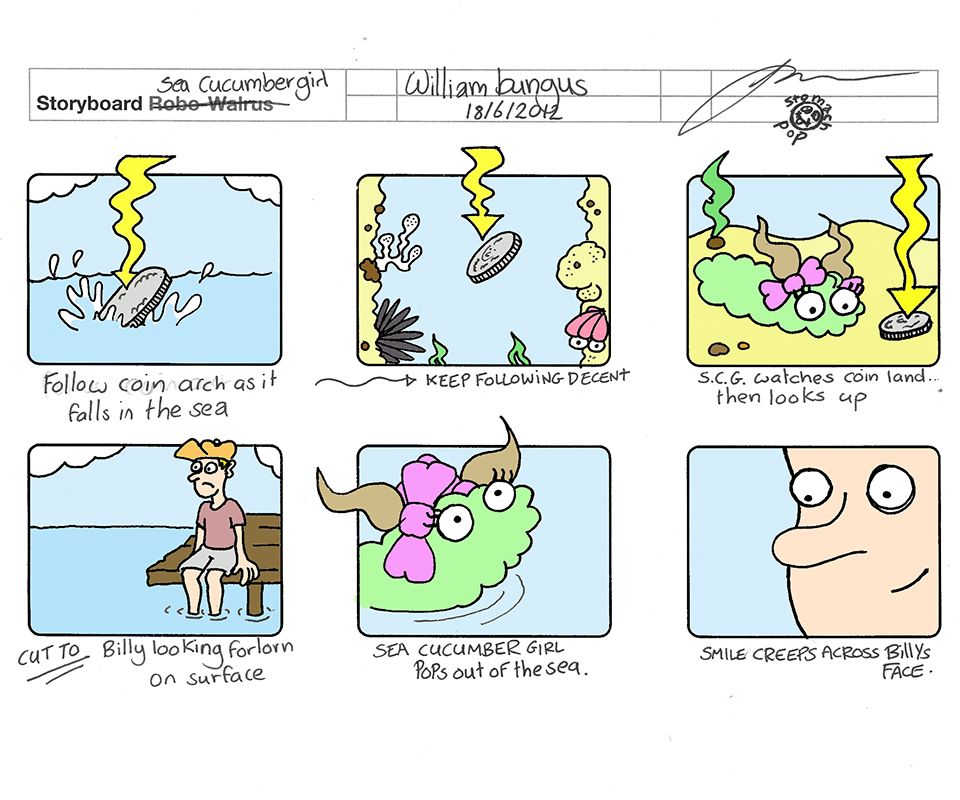 Sea Cucumbergirl
Storyboard Robo-Walrus
William bungus
18/6/2012
Follow coin arch as it
falls in the sea
KEEP FOLLOWING DECENT
S.C.G. watches coin land...
then looks up
CUT TO Billy looking forlorn
on surface
SEA CUCUMBER GIRL
POPS OUT OF THE SEA.
SMILE CREEPS ACROSS BILLYS
FACE.